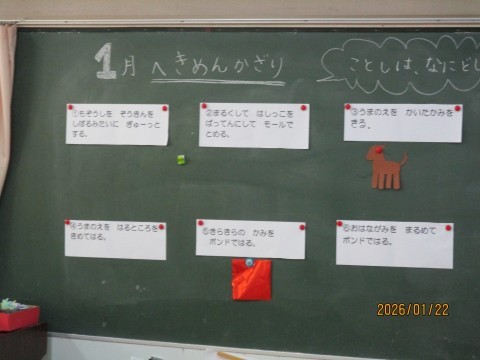 1月 へきめんかざり
ことしは、なにどし
①もぞうしを ぞうきんを
しぼるみたいに ぎゅーっと
する。
②まるくして はしっこを
ばってんにして モールで
とめる。
③うまのえを かいたかみを
きる。
④うまのえを はるところを
きめてはる。
⑤きらきらの かみを
ボンドではる。
⑥おはながみを まるめて
ボンドではる。
2026/01/22